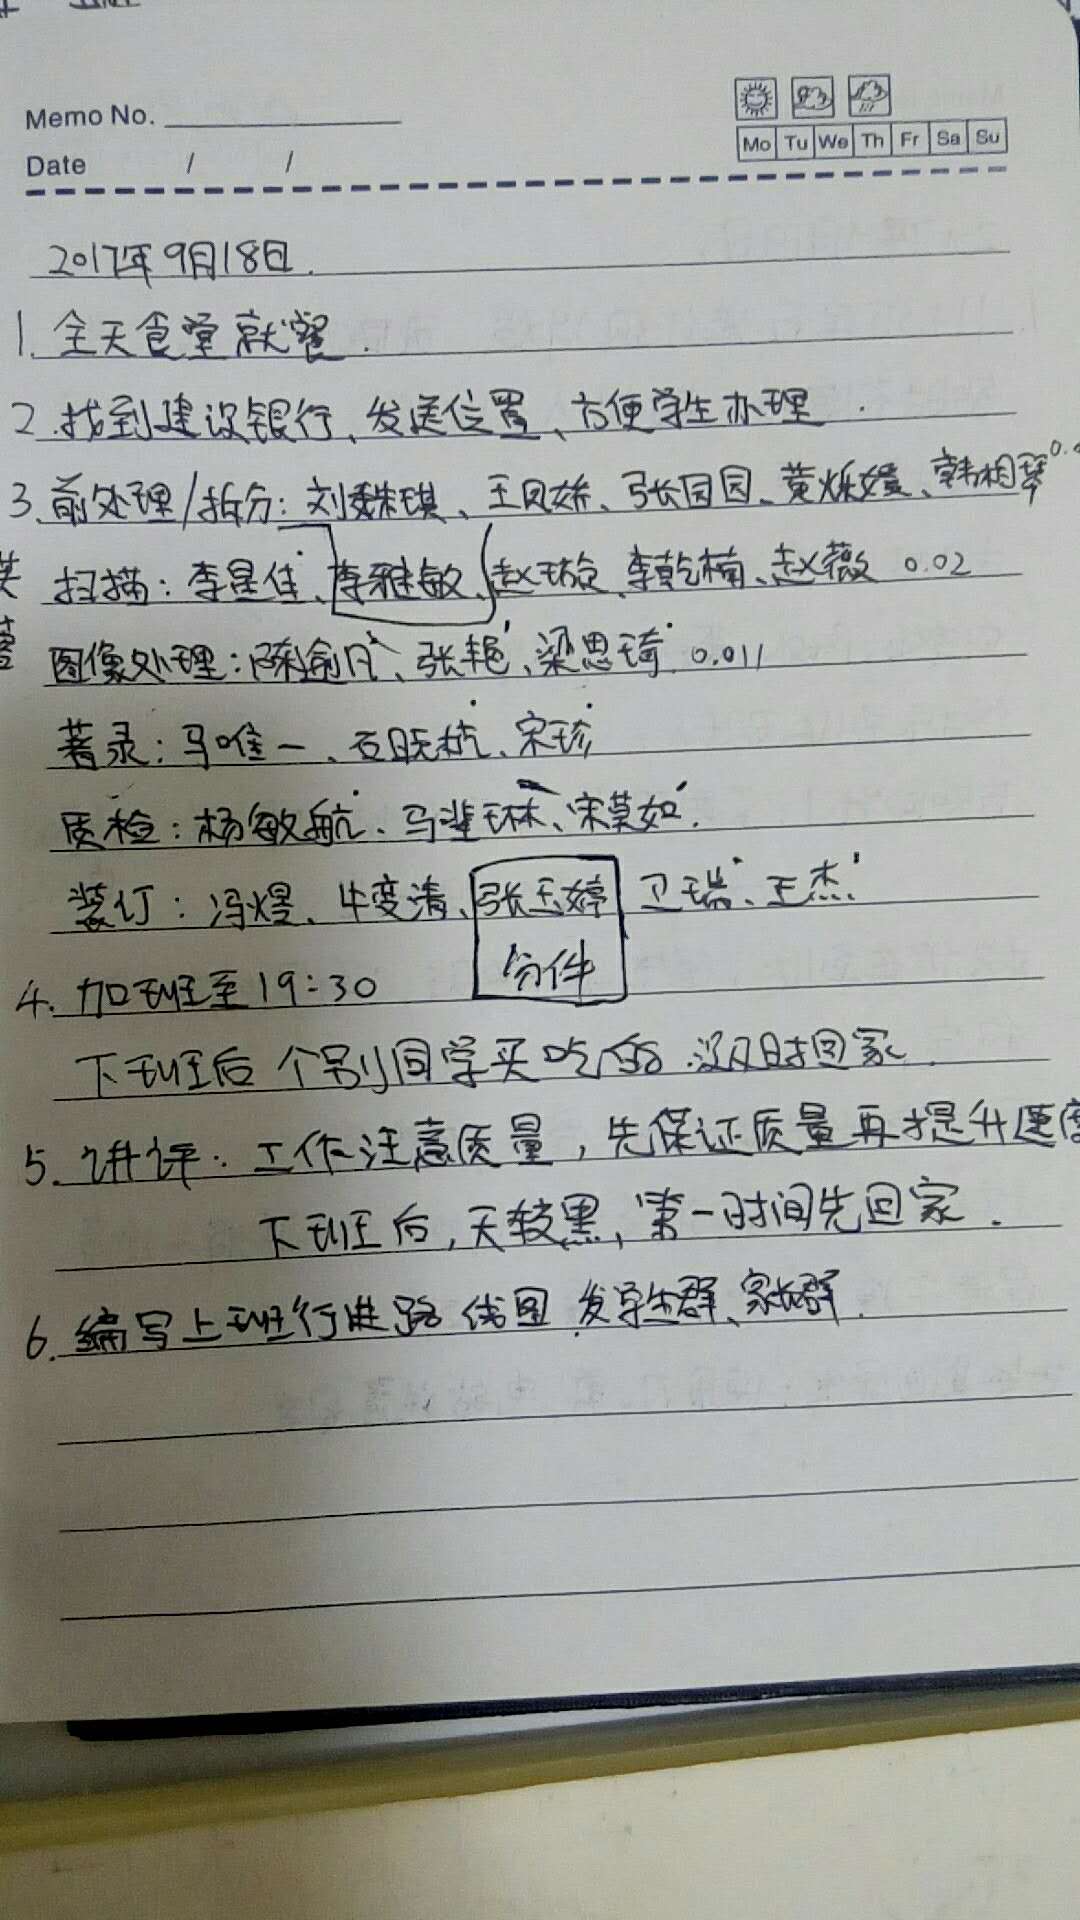 Memo No.
Mo Tu We Th Fr Sa Su
Date / /
2017年9月18日.
1.全天食堂就餐.
2.找到建设银行、发送位置、方便学生办理.
3.前处理/拆分:刘魏琪、王凤娇、张园园、黄烁媛、韩相琴
扫描:李星佳、李雅敏、赵琁、李乾楠、赵薇 0.02
图像处理:陈渝凡、张艳、梁思琦 0.011
著录:马唯一、石晓杭、宋珍
质检:杨敏航、马琳、宋莫如.
装订:冯煜、牛变清、张玉婷 卫瑞、王杰.
分件
4.加班至19:30
下班后个别同学买吃的.没及时回家.
5.讲评:工作注意质量,先保证质量再提升速度
下班后,天较黑,第一时间先回家.
6.编写上班行进路线图.发学生群、家长群.